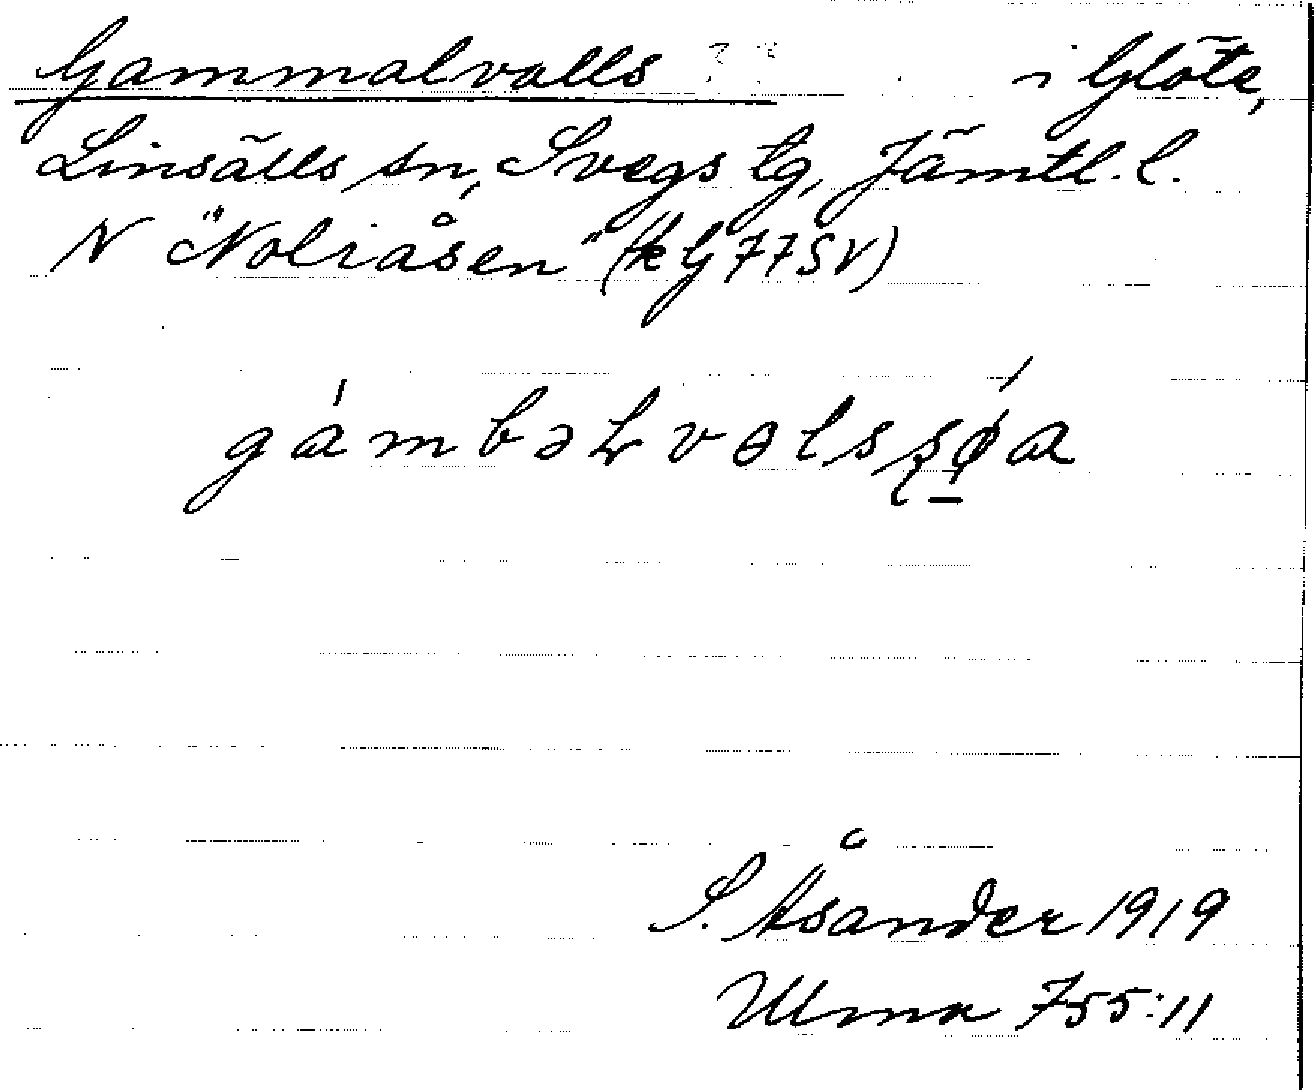 Gammalvalls i Glöte,
Linsälls sn, Svegs tg, Jämtl. l.
N "Noliåsen" (k G 77 SV)
gámbəLvɵlsʂǿa
S. Åsander 1919
Ulma 755:11